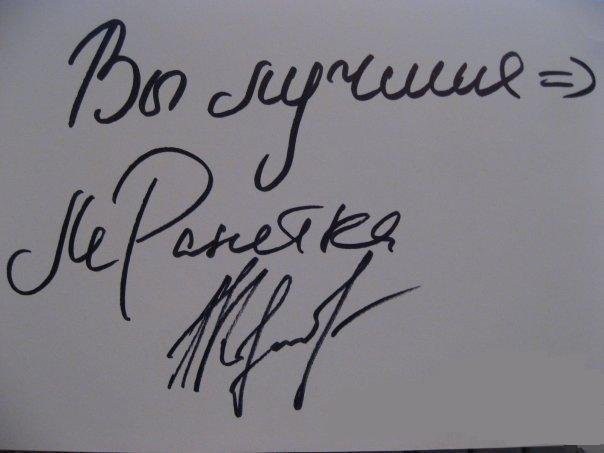 Вы лучшия =)
ЛеРанетка